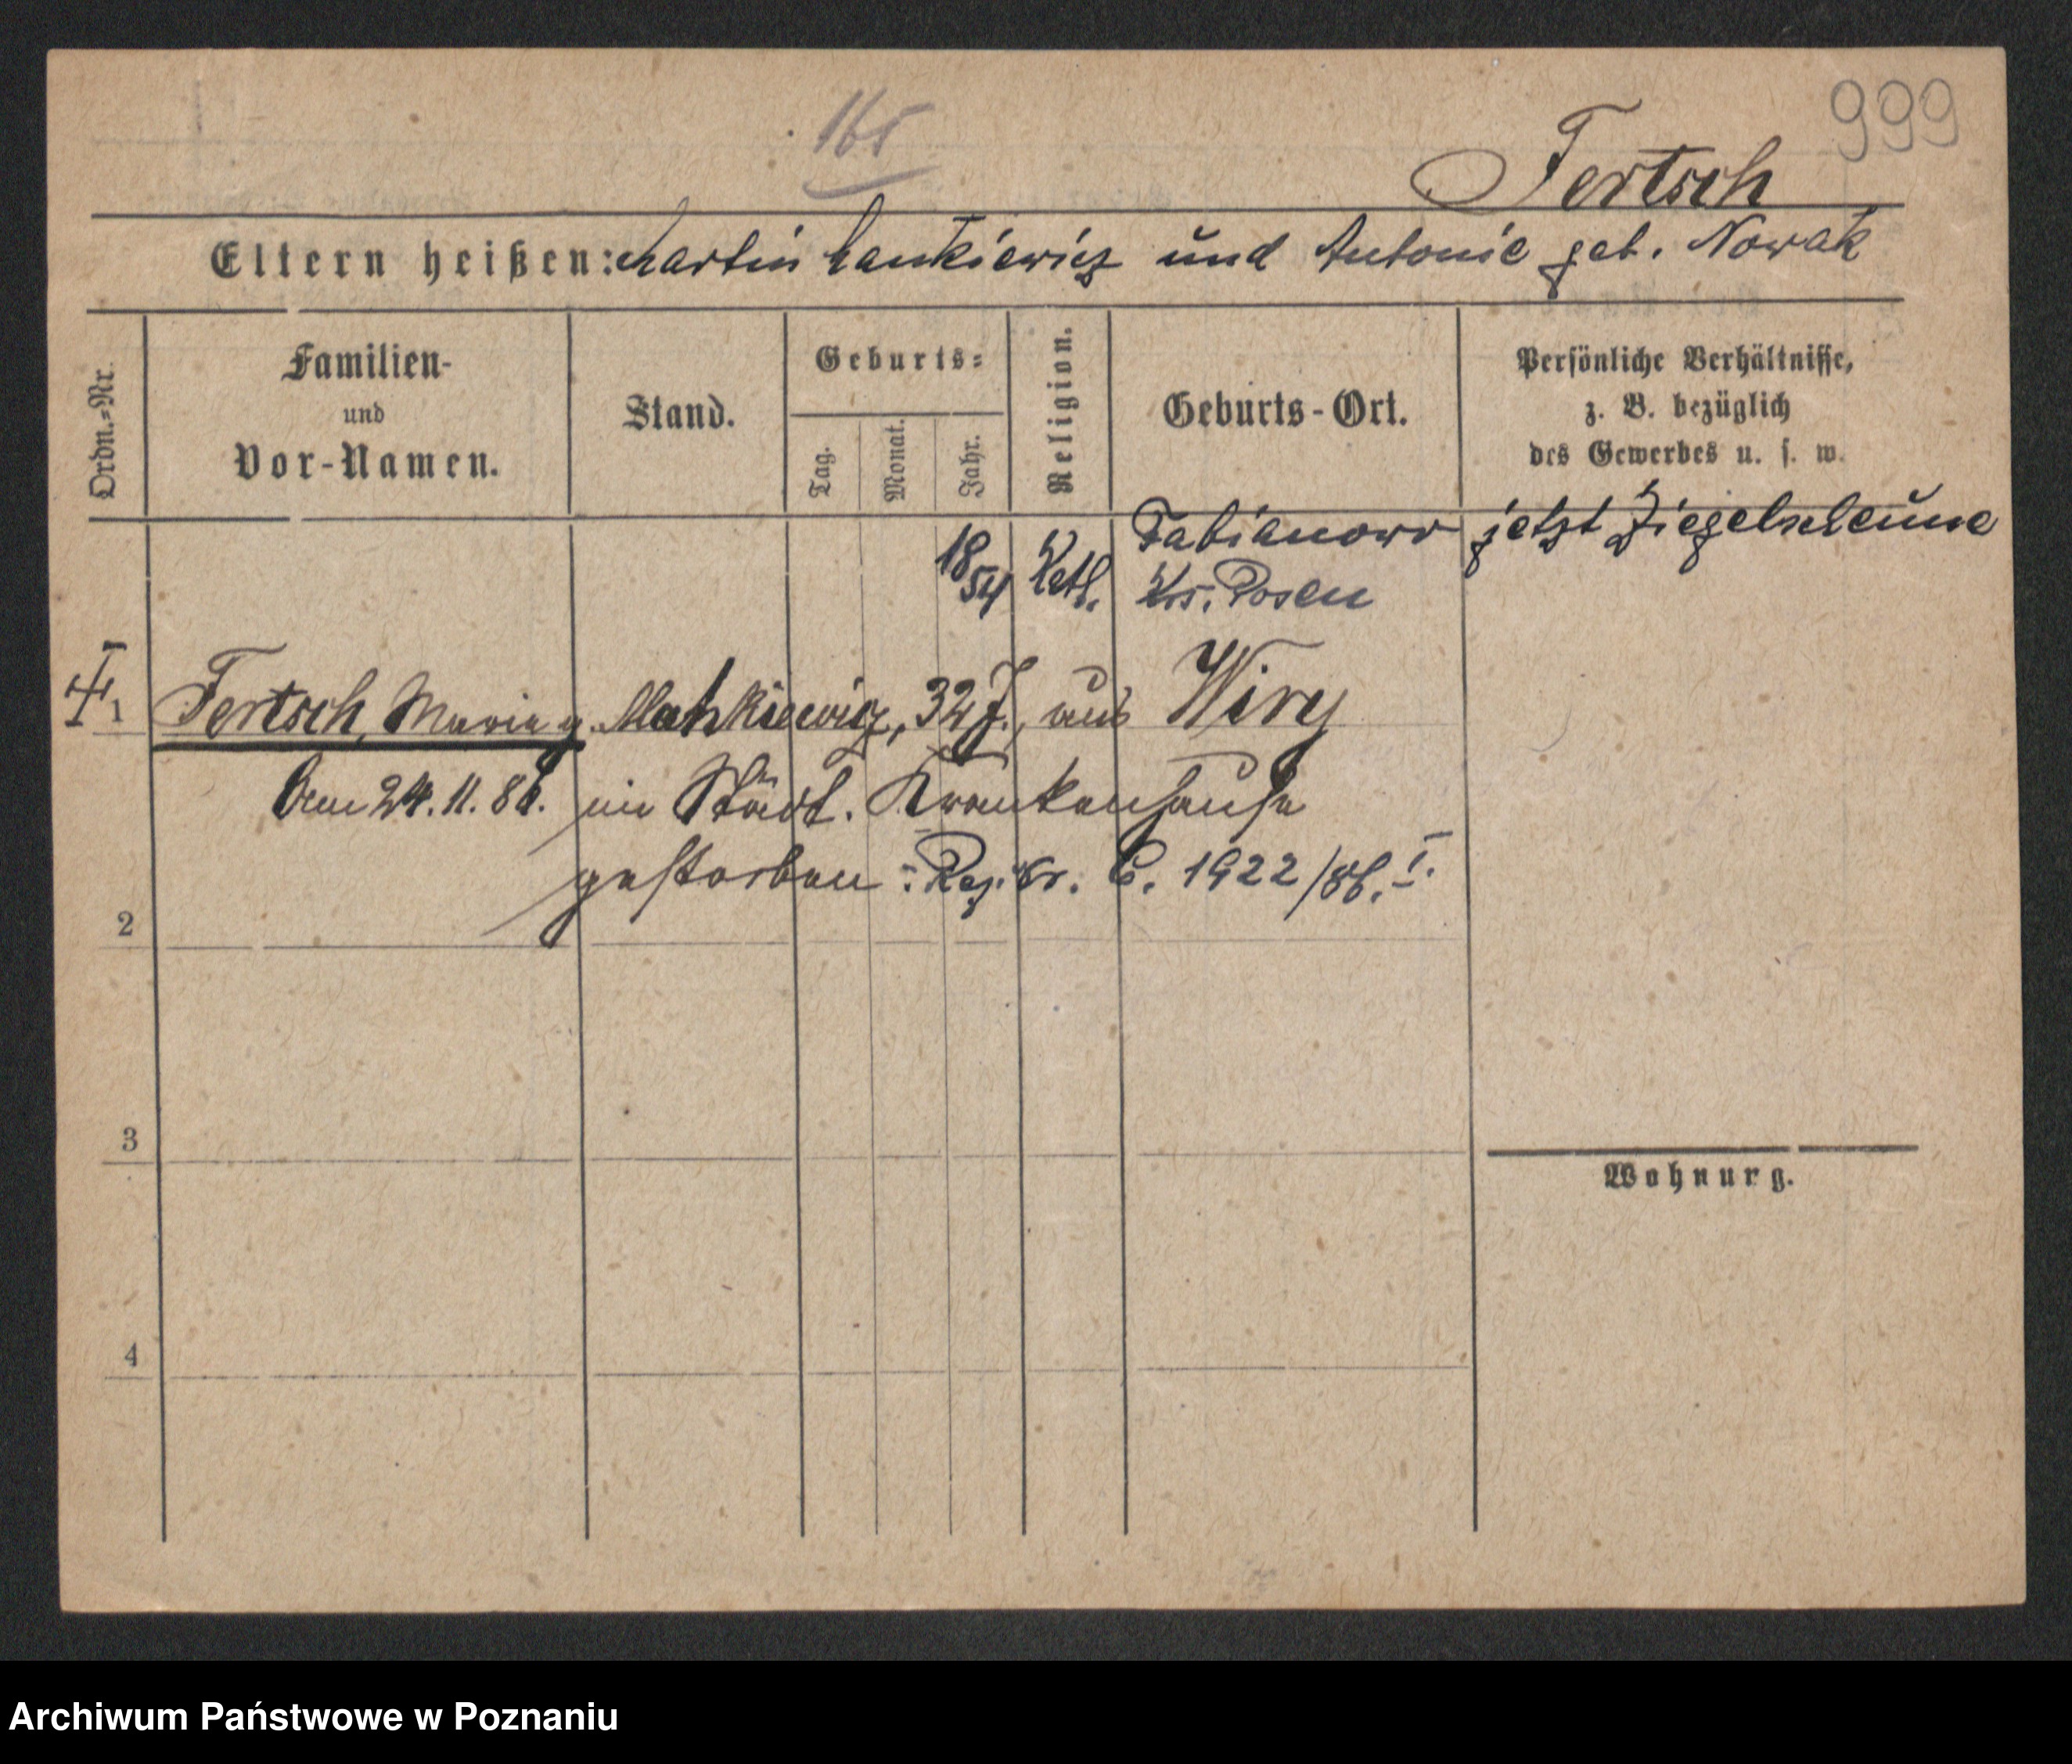 165
999
Fertsch
Eltern heißen: Martin Mankiewicz und Antonie geb. Nowak
Ordn.-Nr.
Familien-
und
Vor-Namen.
Stand.
Geburts-
Tag.
Monat.
Jahr.
Religion.
Geburts-Ort.
Persönliche Verhältnisse,
z. B. bezüglich
des Gewerbes u. s. w.
18 54 Kath. Fabianowo jetzt Ziegelscheune
Krs. Posen
1 Fertsch, Maria g. Mankiewicz, 32 J., aus Wiry
Am 24.11.86. im Städt. Krankenhause
gestorben :Reg. C. 1922/86. I.
2
3
Wohnung.
4
Archiwum Państwowe w Poznaniu